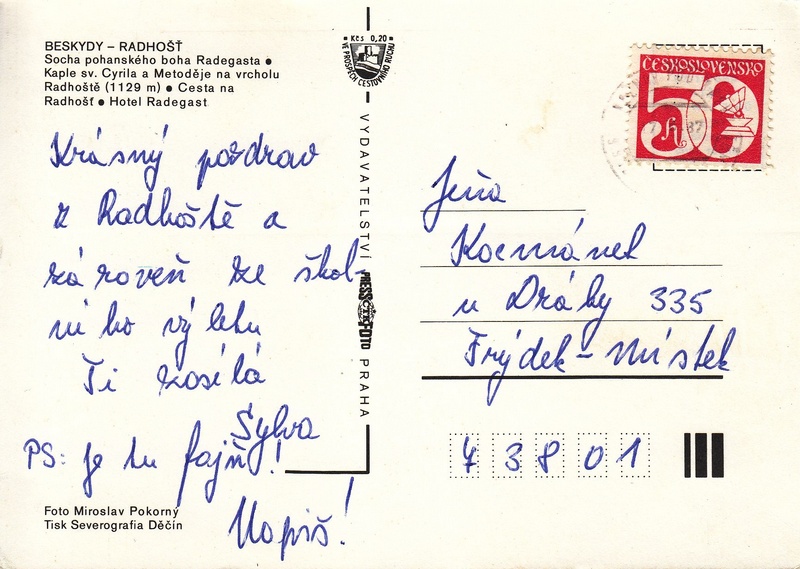 BESKYDY – RADHOŠŤ
Socha pohanského boha Radegasta ●
Kaple sv. Cyrila a Metoděje na vrcholu
Radhoště (1129 m) ● Cesta na
Radhošť ● Hotel Radegast
Krásný pozdrav
z Radhoště a
zároveň ze škol-
ního výletu
Ti zasílá
Sylva
PS: je tu fajň!
Napiš!
Foto Miroslav Pokorný
Tisk Severografia Děčín
Kčs 0,20
VE PROSPĚCH CESTOVNÍHO RUCHU
VYDAVATELSTVÍ PRESSFOTO PRAHA
ČESKOSLOVENSKO
50 h
Jiřa
Kocmánek
u Dráhy 335
Frýdek-Místek
73801